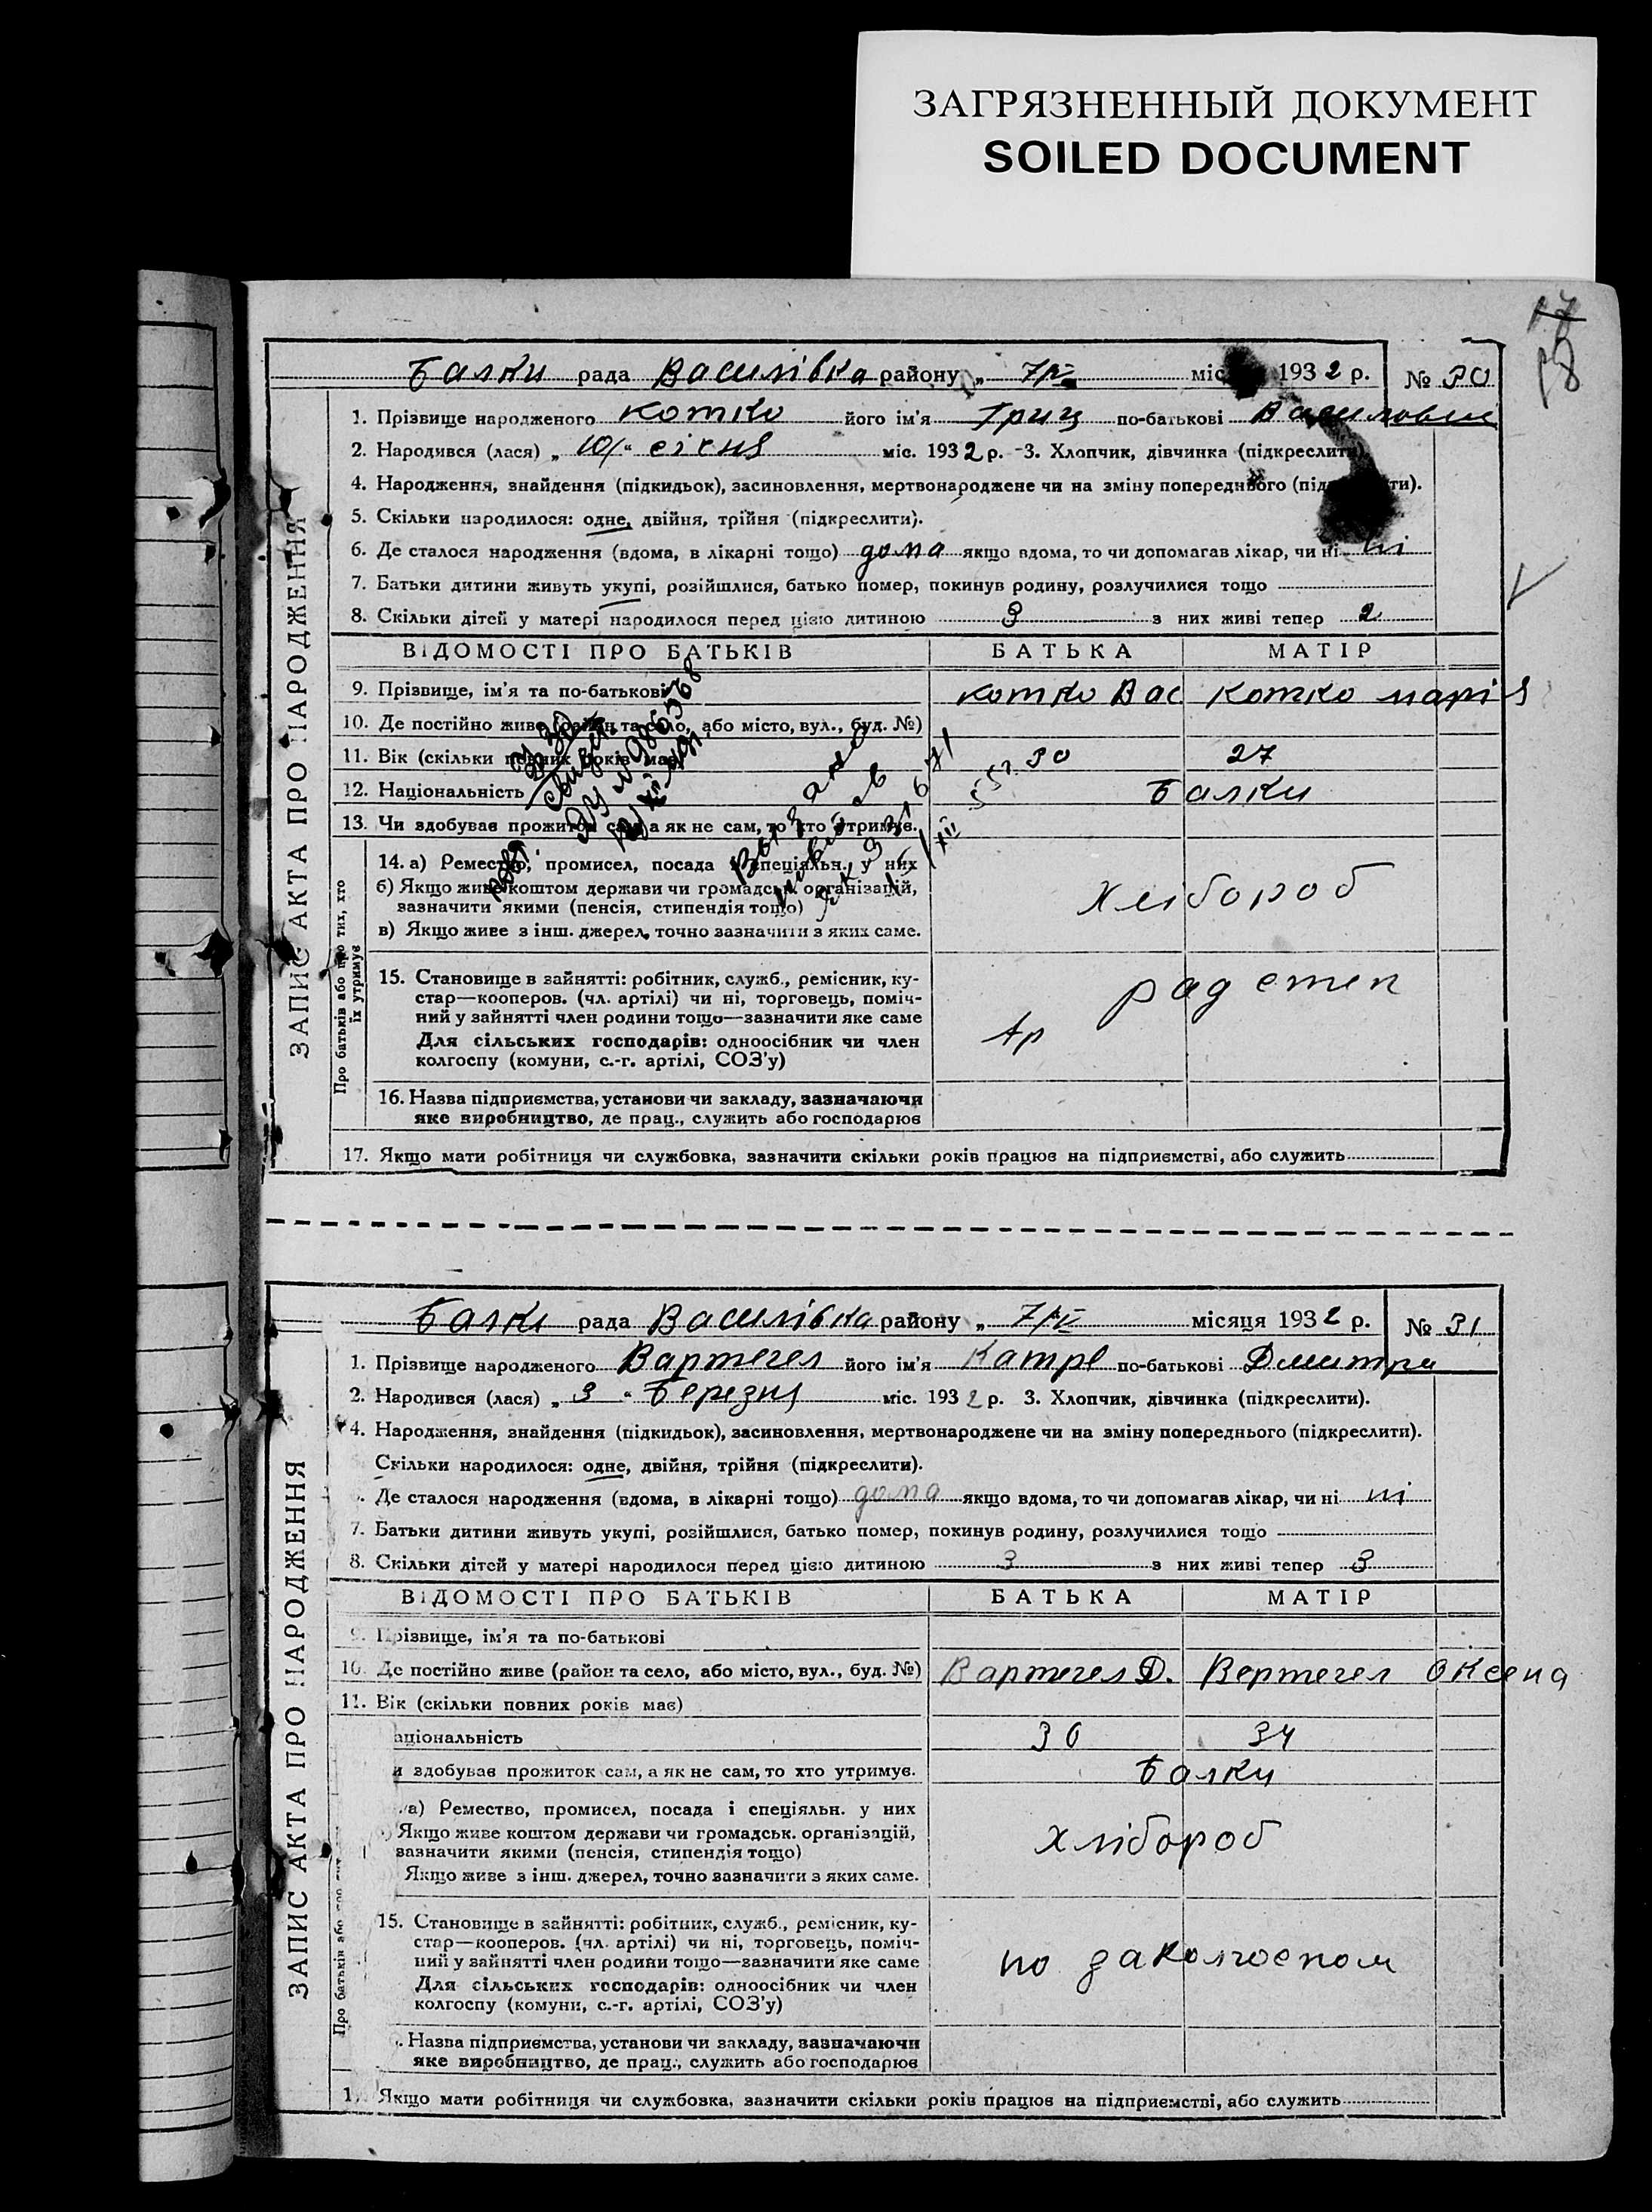 ЗАГРЯЗНЕННЫЙ ДОКУМЕНТ
SOILED DOCUMENT
Балки рада Василівка району „ 7/IV міс 1932 р. № 30
1. Прізвище народженого Котко його ім'я Гриц по-батькові
2. Народився (лася) „ 10/“ січня міс. 1932 р. 3. Хлопчик, дівчинка (підкреслити)
4. Народження, знайдення (підкидьок), засиновлення, мертвонароджене чи на зміну попереднього
5. Скільки народилося: одне, двійня, трійня (підкреслити).
6. Де сталося народження (вдома, в лікарні тощо) дома якщо вдома, то чи допомагав лікар, чи ні ні
7. Батьки дитини живуть укупі, розійшлися, батько помер, покинув родину, розлучилися тощо
8. Скільки дітей у матері народилося перед цією дитиною 3 з них живі тепер 2
ВІДОМОСТІ ПРО БАТЬКІВ БАТЬКА МАТІР
9. Прізвище, ім'я та по-батькові Котко Вас Котко Марія
10. Де постійно живе (район та село, або місто, вул., буд. №)
11. Вік (скільки повних років має) 30 27
12. Національність Балки
13. Чи здобував прожиток сам, а як не сам, то хто утримує.
14. а) Ремество, промисел, посада і спеціяльн. у них
б) Якщо живе коштом держави чи громадськ. організацій,
зазначити якими (пенсія, стипендія тощо)
хлібороб
в) Якщо живе з інш. джерел, точно зазначити з яких саме.
15. Становище в зайнятті: робітник, служб., ремісник, ку-
стар—кооперов. (чл. артілі) чи ні, торговець, поміч-
ний у зайнятті член родини тощо—зазначити яке саме
Для сільських господарів: одноосібник чи член
колгоспу (комуни, с.-г. артілі, СОЗ'у)
Ар рад степ
16. Назва підприємства, установи чи закладу, зазначаючи
яке виробництво, де прац., служить або господарює
17. Якщо мати робітниця чи службовка, зазначити скільки років працює на підприємстві, або служить
ЗАПИС АКТА ПРО НАРОДЖЕННЯ
Про батьків або про тих, хто
їх утримує
Балки рада Василівка району „ 7/IV місяця 1932 р. № 31
1. Прізвище народженого Вартегел його ім'я Катре по-батькові Дмитра
2. Народився (лася) „ 3 “ Березня міс. 1932 р. 3. Хлопчик, дівчинка (підкреслити).
4. Народження, знайдення (підкидьок), засиновлення, мертвонароджене чи на зміну попереднього (підкреслити).
Скільки народилося: одне, двійня, трійня (підкреслити).
Де сталося народження (вдома, в лікарні тощо) дома якщо вдома, то чи допомагав лікар, чи ні ні
7. Батьки дитини живуть укупі, розійшлися, батько помер, покинув родину, розлучилися тощо
8. Скільки дітей у матері народилося перед цією дитиною 3 з них живі тепер 3
ВІДОМОСТІ ПРО БАТЬКІВ БАТЬКА МАТІР
9. Прізвище, ім'я та по-батькові
10. Де постійно живе (район та село, або місто, вул., буд. №) Вартегел Д. Вертегел Оксена
11. Вік (скільки повних років має)
аціональність 36 34
и здобував прожиток сам, а як не сам, то хто утримує. Балки
а) Ремество, промисел, посада і спеціяльн. у них
Якщо живе коштом держави чи громадськ. організацій,
зазначити якими (пенсія, стипендія тощо)
хлібороб
Якщо живе з інш. джерел, точно зазначити з яких саме.
15. Становище в зайнятті: робітник, служб., ремісник, ку-
стар—кооперов. (чл. артілі) чи ні, торговець, поміч-
ний у зайнятті член родини тощо—зазначити яке саме
Для сільських господарів: одноосібник чи член
колгоспу (комуни, с.-г. артілі, СОЗ'у)
по заколгоспом
Назва підприємства, установи чи закладу, зазначаючи
яке виробництво, де прац., служить або господарює
1 Якщо мати робітниця чи службовка, зазначити скільки років працює на підприємстві, або служить
ЗАПИС АКТА ПРО НАРОДЖЕННЯ
Про батьків або